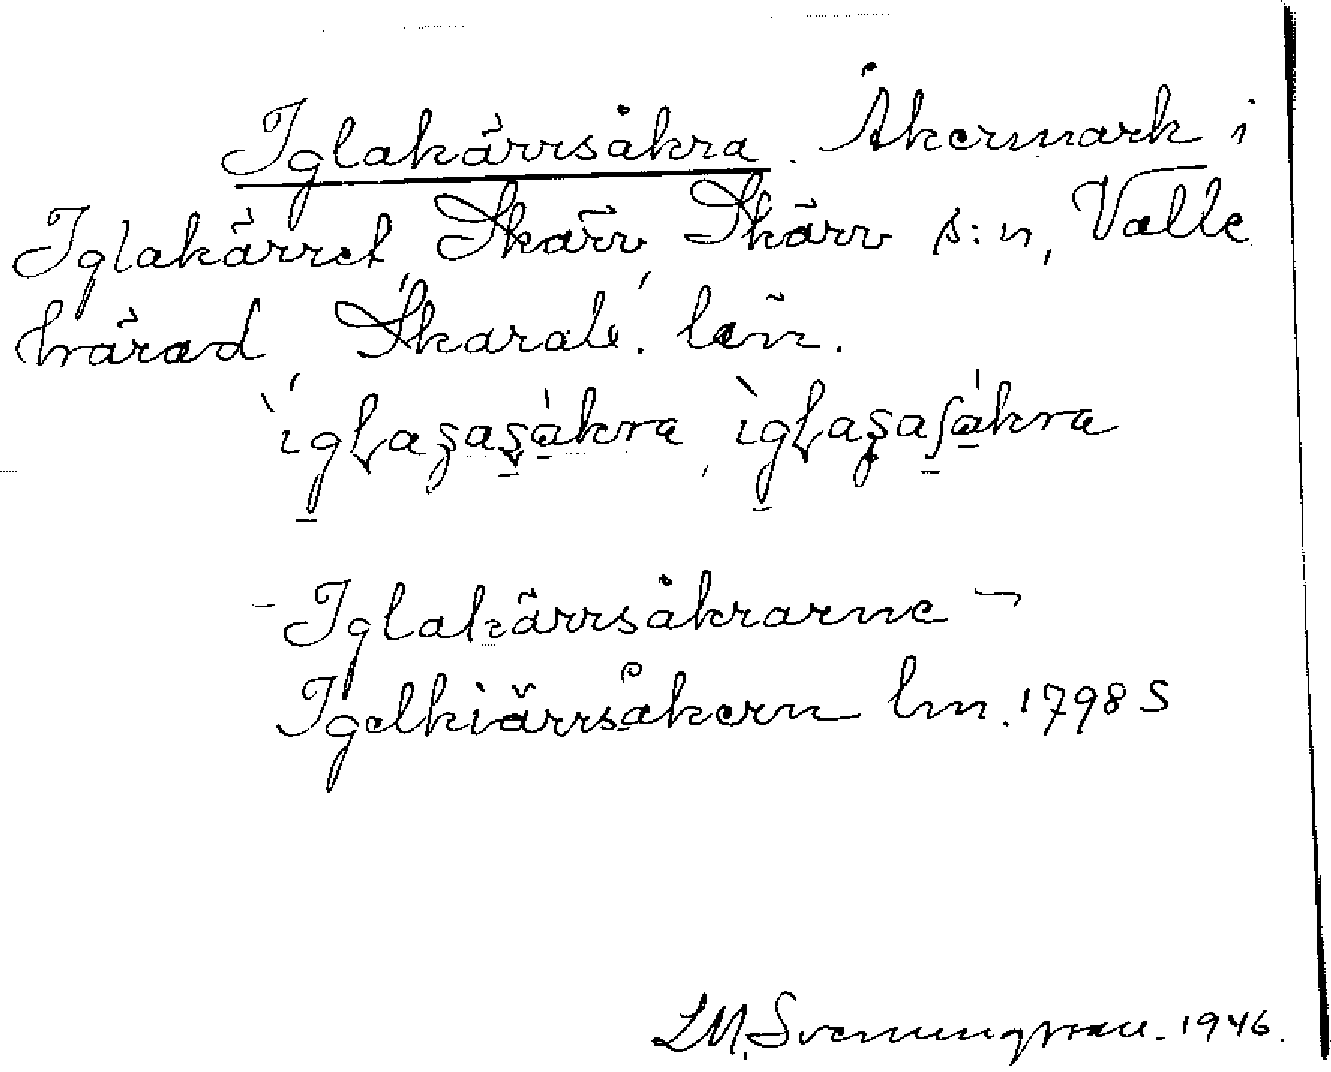 Iglakärrsåkra. Åkermark i
Iglakärret, Skärv, Skärv s:n, Valle
härad, Skarab. län.
Iglakärrsåkrarne
Igelkiärrsåkern lm. 1798 S
LM. Svenungsson 1946.